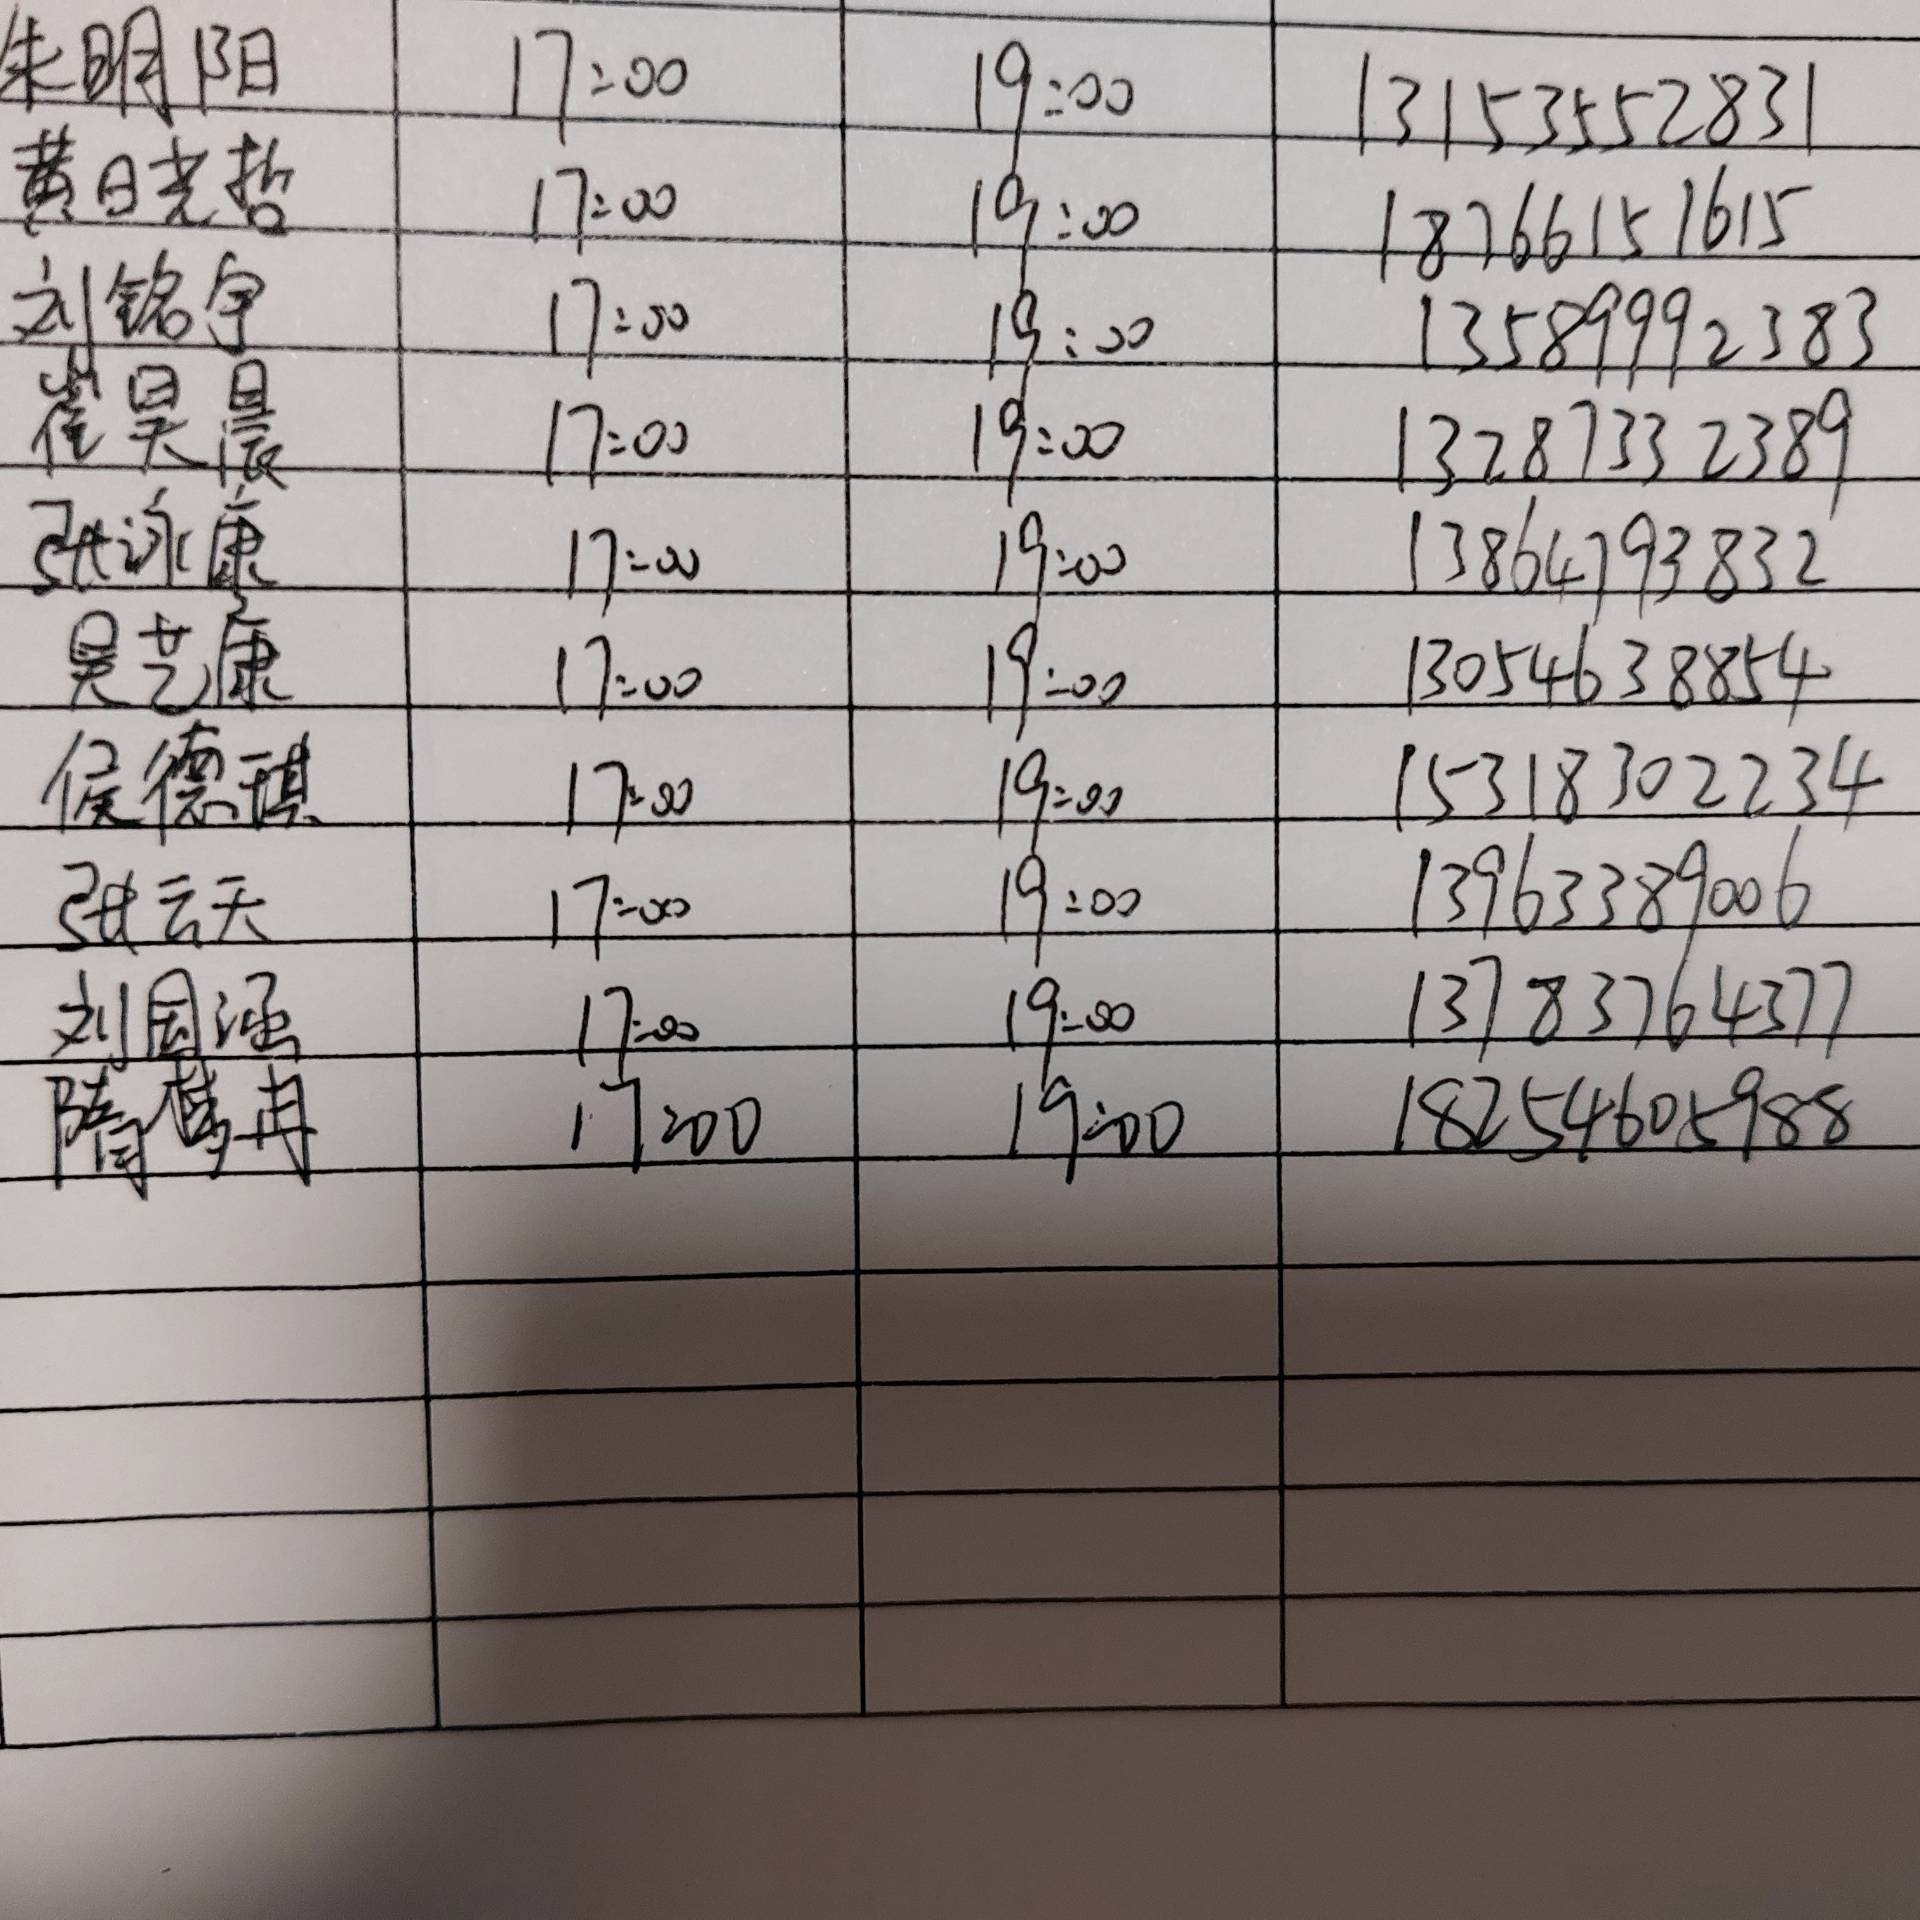 朱明阳 17:00 19:00 13153552831
黄晓哲 17:00 19:00 18766151615
刘铭宇 17:00 19:00 13589992383
崔昊晨 17:00 19:00 13287332389
张泳康 17:00 19:00 13864793832
吴艺康 17:00 19:00 13054638854
侯德琪 17:00 19:00 15318302234
张云天 17:00 19:00 13963389006
刘国强 17:00 19:00 13783764377
隋梦冉 17:00 19:00 18254605988